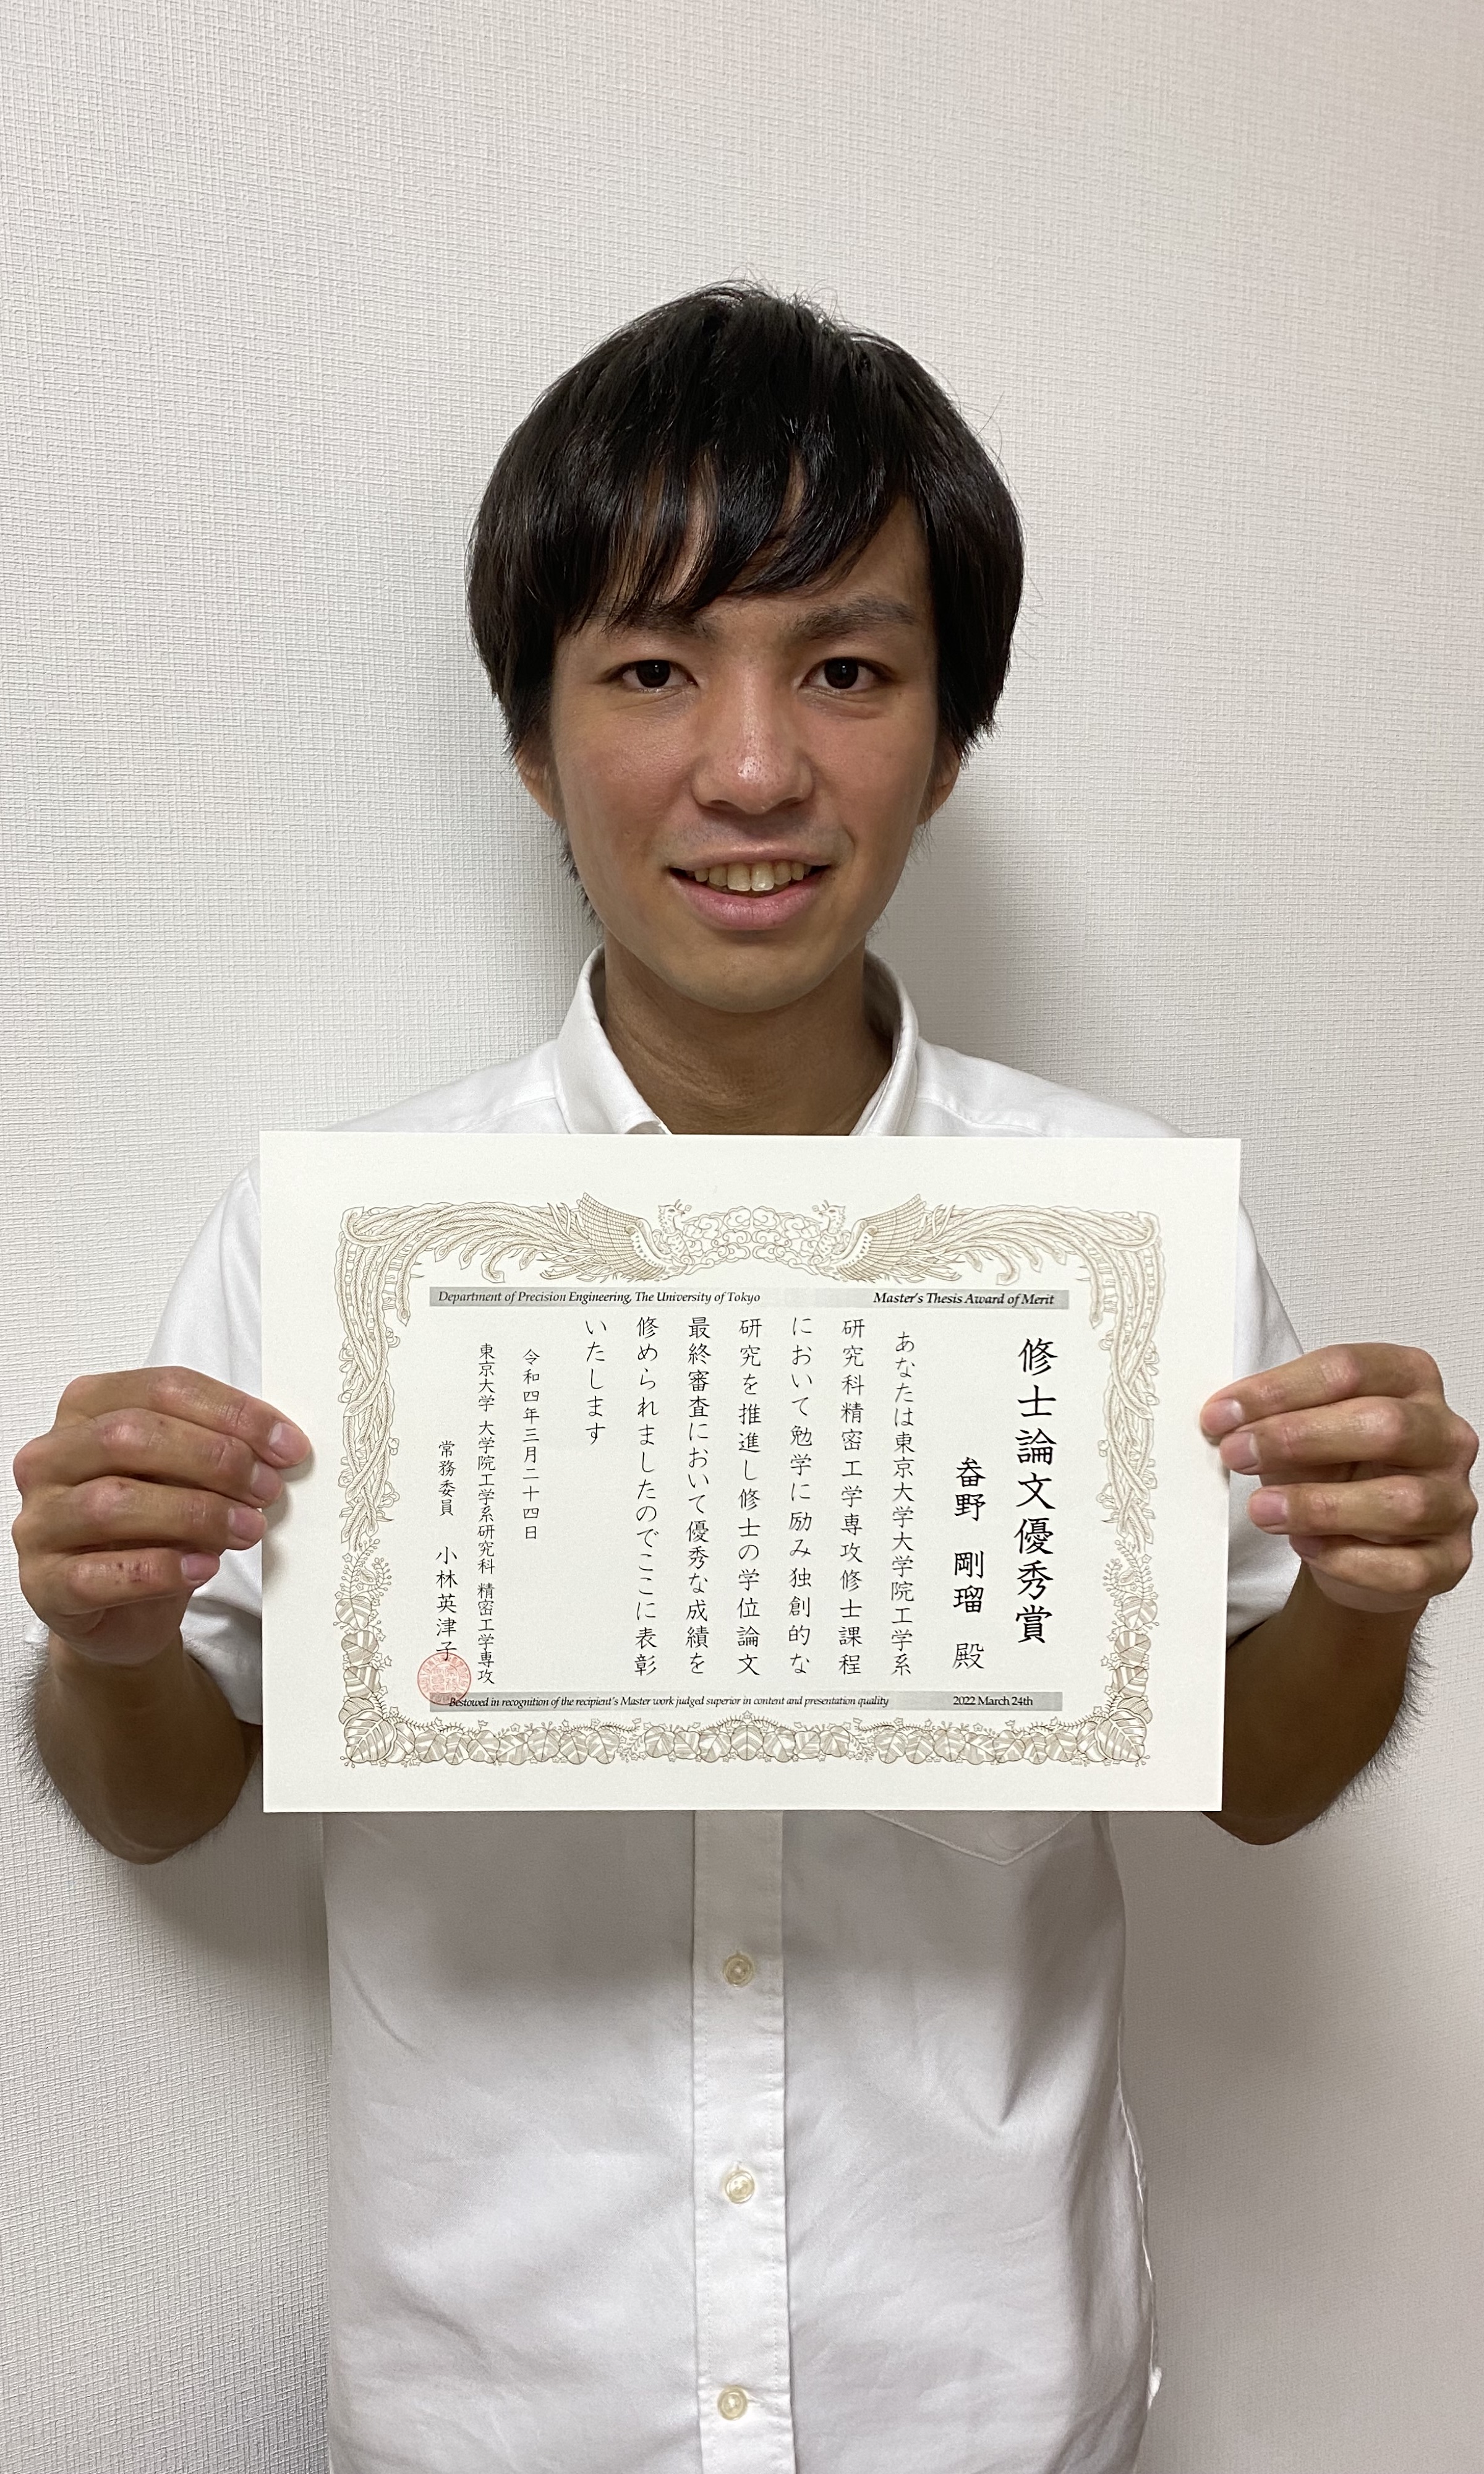 Department of Precision Engineering, The University of Tokyo
Master's Thesis Award of Merit
修士論文優秀賞
畚野 剛瑠 殿
あなたは東京大学大学院工学系
研究科精密工学専攻修士課程
において勉学に励み独創的な
研究を推進し修士の学位論文
最終審査において優秀な成績を
修められましたのでここに表彰
いたします
令和四年三月二十四日
東京大学 大学院工学系研究科 精密工学専攻
常務委員 小林英津子
Bestowed in recognition of the recipient's Master work judged superior in content and presentation quality
2022 March 24th